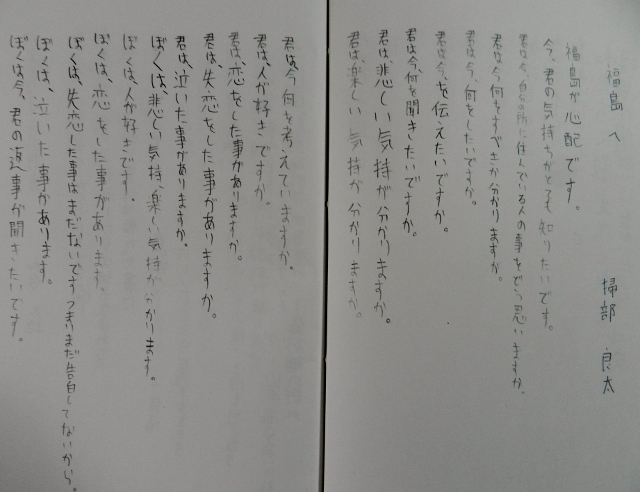 福島へ
掃部 良太
福島が心配です。
今、君の気持ちがとても知りたいです。
君は今、自分の所に住んでいる人の事をどう思いますか。
君は今、何をすべきか分かりますか。
君は今、何をしたいですか。
君は今、何を伝えたいですか。
君は今、何を聞きたいですか。
君は、悲しい気持が分かりますか。
君は、楽しい気持が分かりますか。
君は今、何を考えていますか。
君は、人が好きですか。
君は、恋をした事がありますか。
君は、失恋をした事がありますか。
君は、泣いた事がありますか。
ぼくは、悲しい気持、楽しい気持が分かります。
ぼくは、人が好きです。
ぼくは、恋をした事があります。
ぼくは、失恋した事はまだないですつまりまだ告白してないから。
ぼくは、泣いた事があります。
ぼくは今、君の返事が聞きたいです。